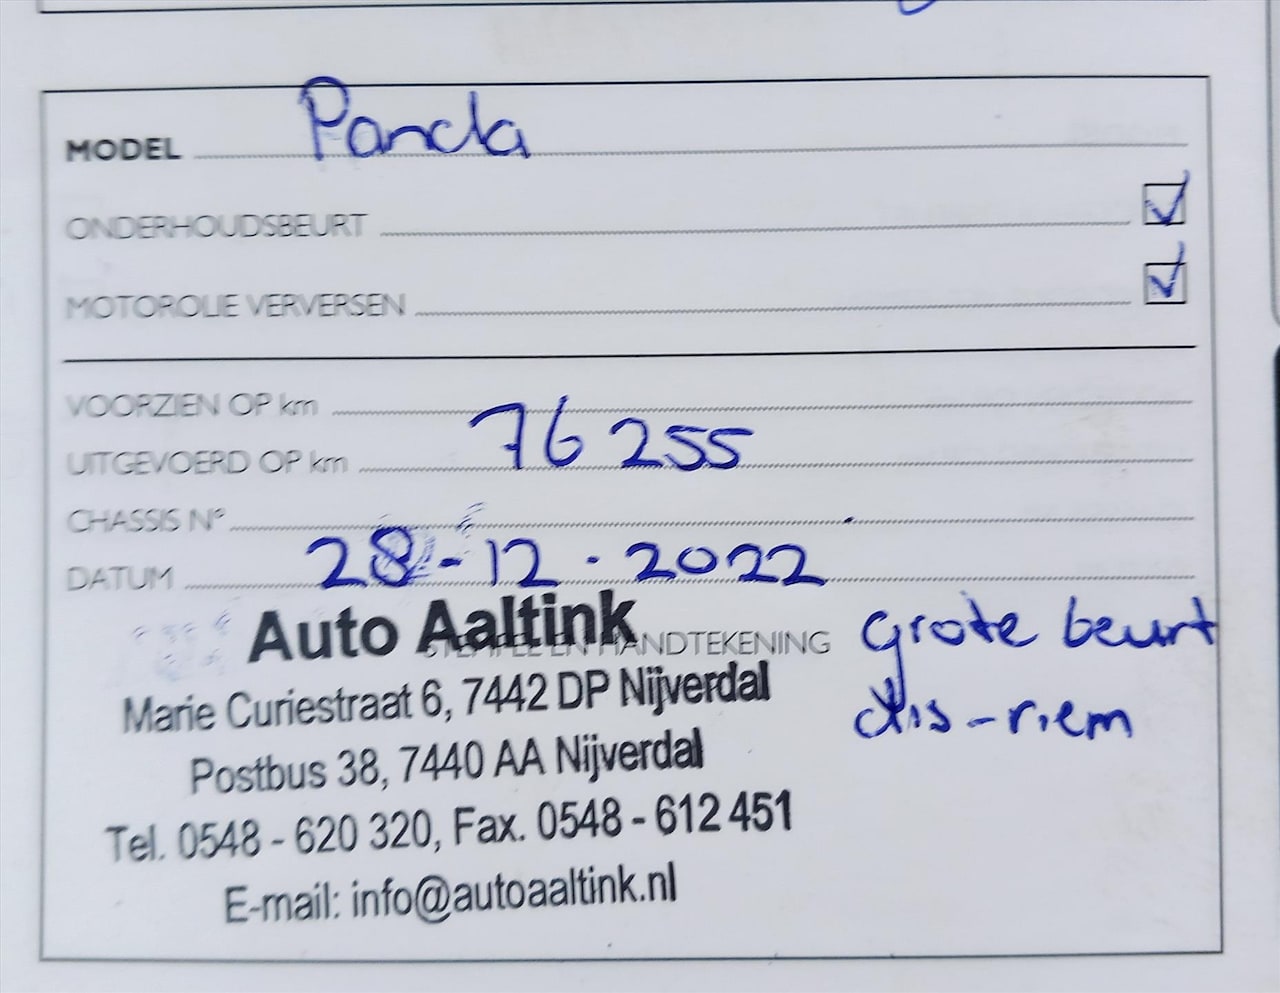 MODEL Panda
ONDERHOUDSBEURT
MOTOROLIE VERVERSEN
VOORZIEN OP km
UITGEVOERD OP km 76 255
CHASSIS N°
DATUM 28-12-2022
Auto Aaltink
STEMPEL EN HANDTEKENING
grote beurt
Marie Curiestraat 6, 7442 DP Nijverdal
dis-riem
Postbus 38, 7440 AA Nijverdal
Tel. 0548 - 620 320, Fax. 0548 - 612 451
E-mail: info@autoaaltink.nl